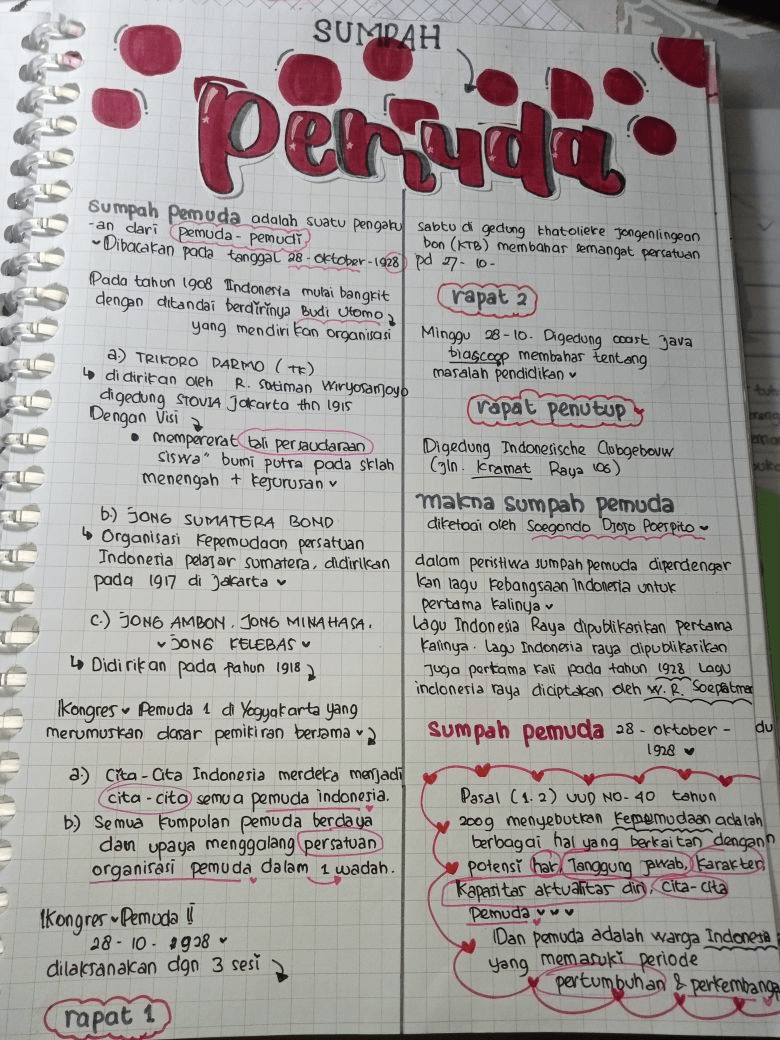 SUMPAH
Pemuda
Sumpah Pemuda adalah suatu pengaku
-an dari pemuda-pemudi
Dibacakan pada tanggal 28-Oktober-1928
Pada tahun 1908 Indonesia mulai bangkit
dengan ditandai berdirinya Budi Utomo
yang mendirikan organisasi
a.) TRIKORO DARMO (TK)
didirikan oleh R. Satiman Wiryosanjoyo
digedung STOVIA Jakarta thn 1915
Dengan Visi
• mompererat tali persaudaraan
siswa" bumi putra pada sklah
menengah + kejurusan
b.) JONG SUMATERA BOND
Organisasi kepemudaan persatuan
Indonesia pelajar sumatera, didirikan
pada 1917 di jakarta
c.) JONG AMBON. JONG MINAHASA.
JONG KELEBAS
Didirikan pada tahun 1918
Kongres Pemuda 1 di Yogyakarta yang
merumuskan dasar pemikiran bersama
a.) Cita-Cita Indonesia merdeka menjadi
cita-cita semua pemuda indonesia.
b) Semua kumpulan pemuda berdaya
dan upaya menggalang persatuan
organisasi pemuda dalam 1 wadah.
Kongres Pemuda II
28-10. 1928
dilaksanakan dgn 3 sesi
rapat 1
sabtu di gedung khatolieke jongenlingean
bon (KTB) membahas semangat persatuan
pd 27-10-
rapat 2
Minggu 28-10. Digedung coast java
biascoop membahas tentang
masalah pendidikan
rapat penutup
Digedung Indonesische Clubgebouw
(jln. kramat Raya 106)
makna sumpah pemuda
diketoai oleh Soegondo Djojo Poespito
dalam peristiwa sumpah pemuda diperdengar
kan lagu kebangsaan Indonesia untuk
pertama kalinya
Lagu Indonesia Raya dipublikasikan pertama
kalinya. lagu Indonesia raya dipublikasikan
juga pertama kali pada tahun 1928 Lagu
indonesia raya diciptakan oleh W. R. Soepatman
sumpah pemuda 28 - oktober - du
1928
Pasal (1.2) UUD NO-40 tahun
2009 menyebutkan kepemudaan adalah
berbagai hal yang berkaitan dengann
potensi hak, Tanggung jawab, karakter,
kapasitas aktualitas diri, cita-cita
pemuda
Dan pemuda adalah warga Indonesia
yang memasuki periode
pertumbuhan & perkembanga